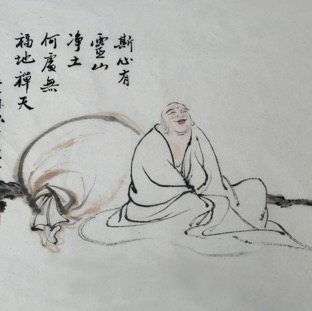 斯心有
靈山
淨土
何處無
福地禪天